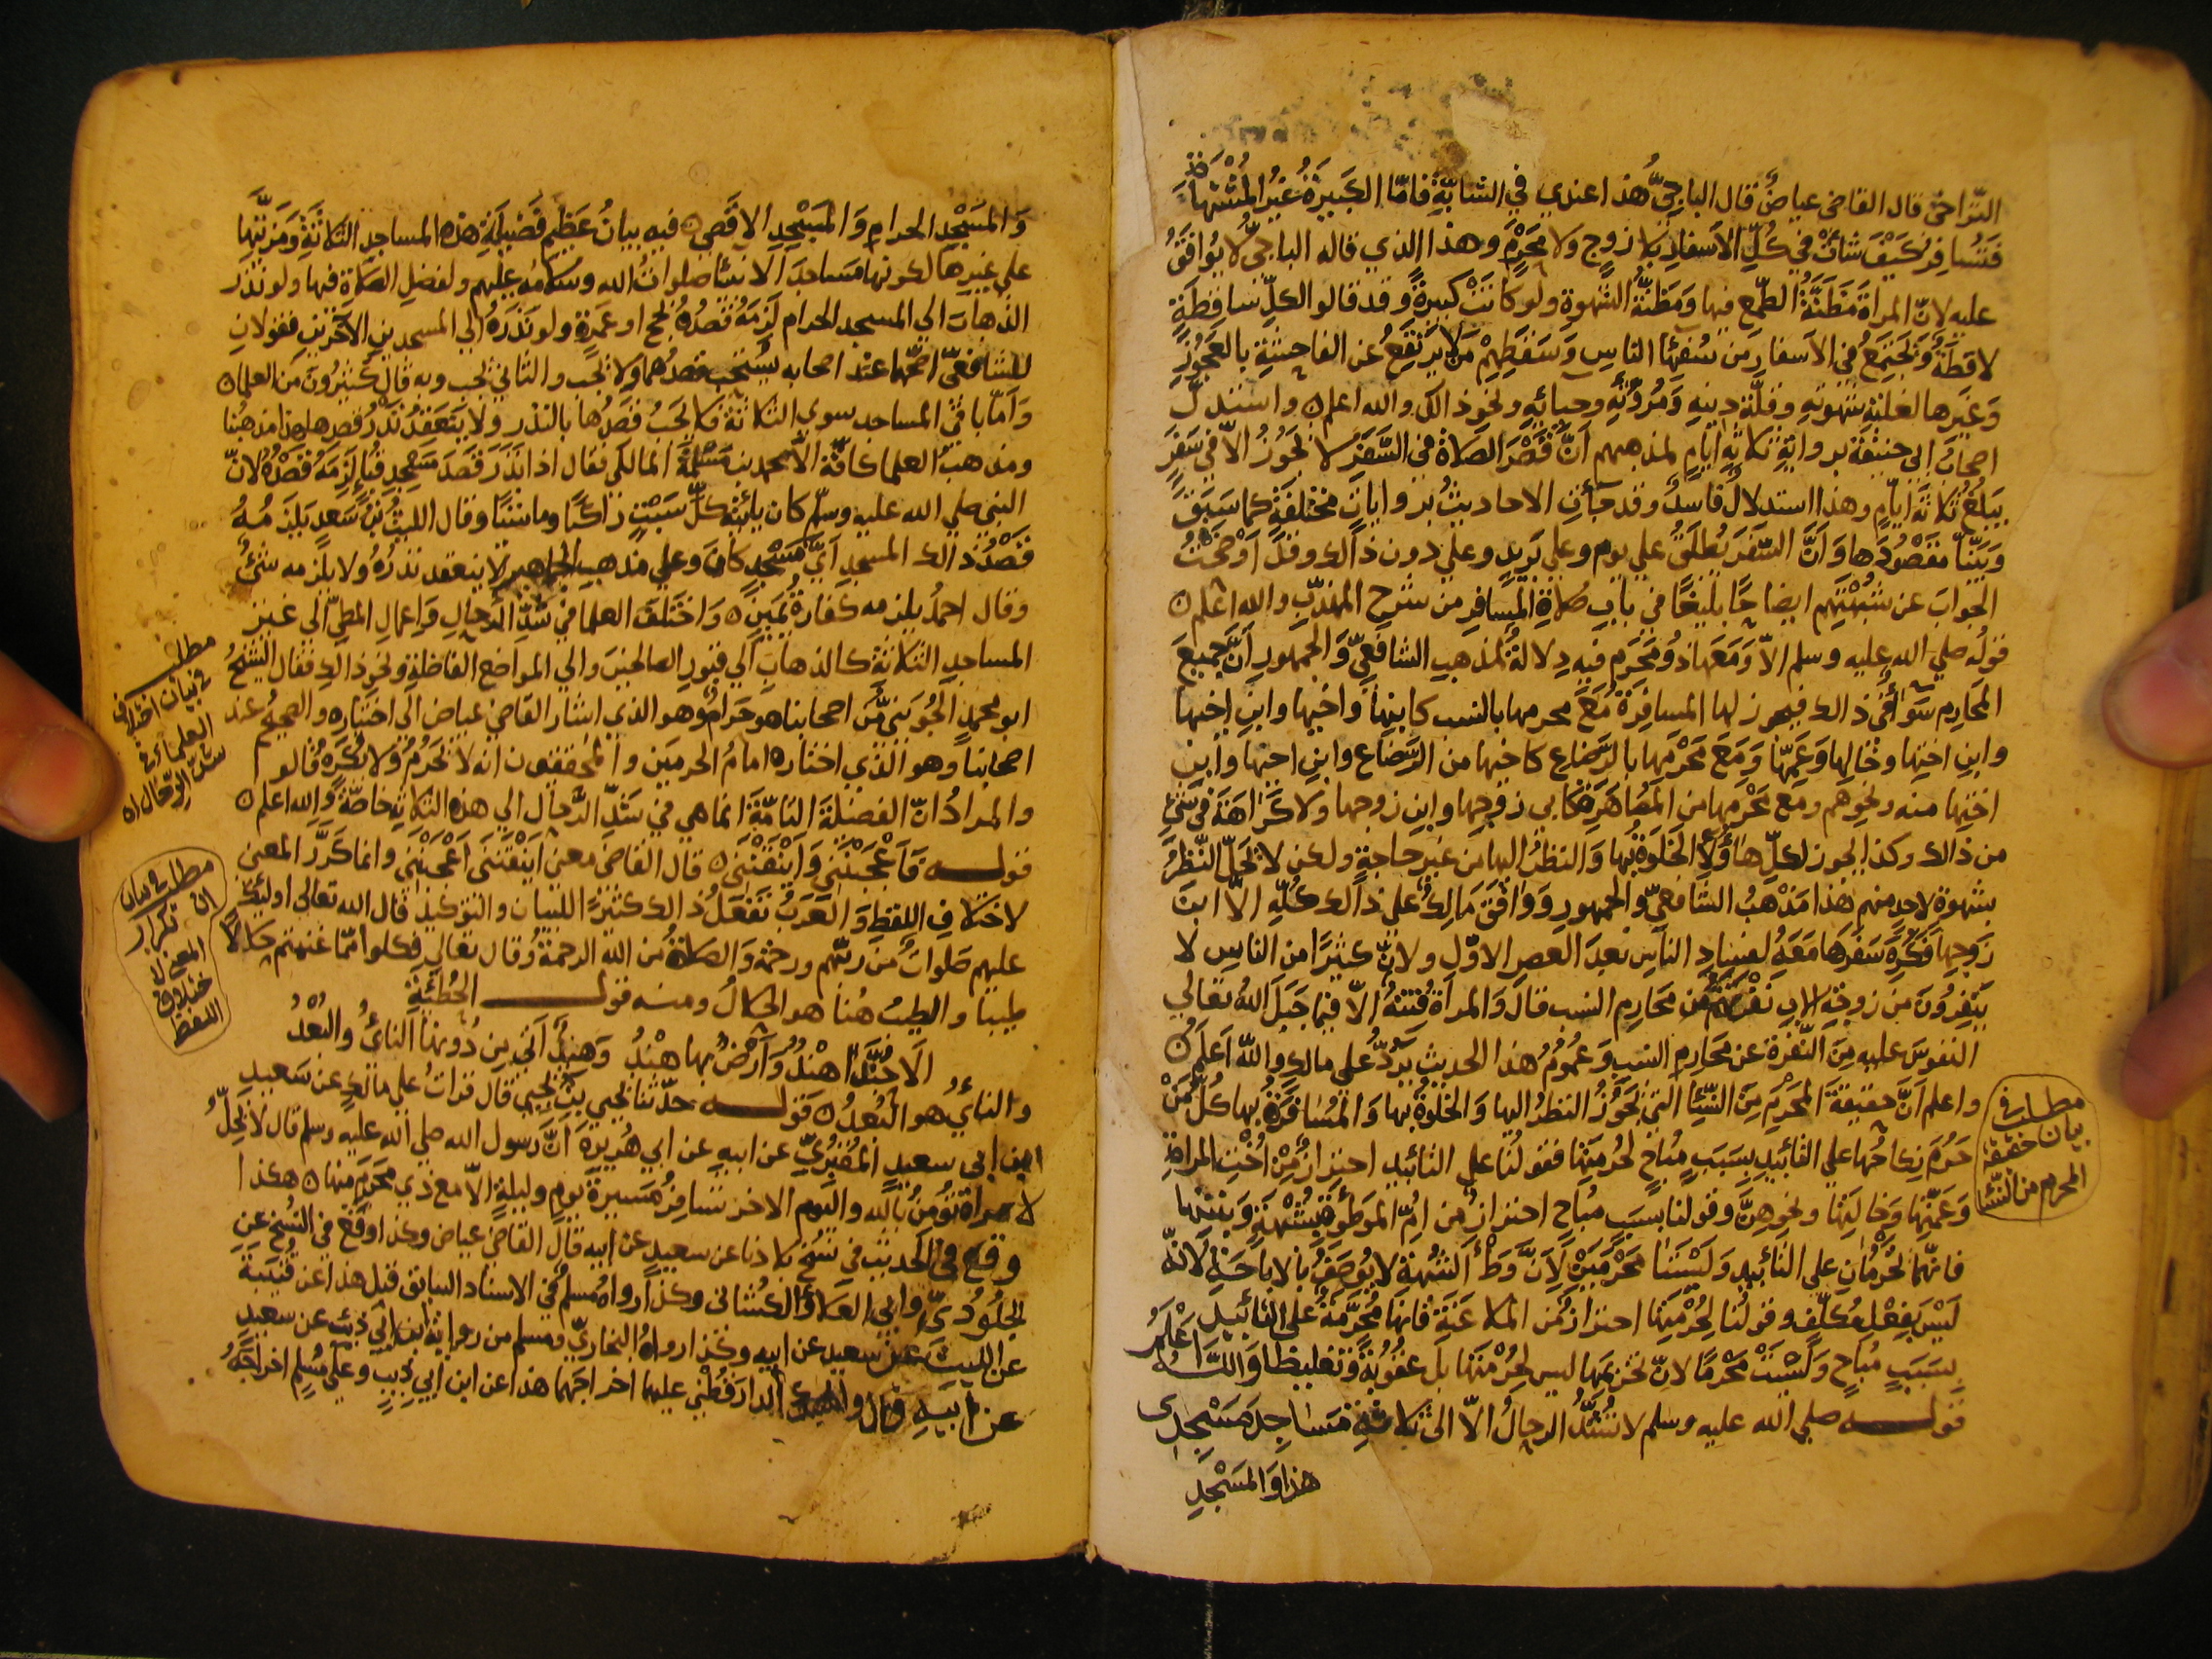 التراخي قال القاضي عياض قال الباجيُّ هذا عندي في الشابّةِ فامّا الكبيرةُ غيرُ المشتهاة
فتسافر كيفَ شاتْ في كلّ الاسفار بلا زوج ولا محرم وهذا الذي قاله الباجيّ لا يُوافَقُ
عليه لانّ المراة مظنّةُ الطمع فيها ومظنّة الشهوة ولو كانتْ كبيرةً وقد قالوا لكلّ ساقطةٍ
لاقطةٌ وتجتمعُ في الاسفار من سُفهاء الناسِ وسَقَطِهِمْ مَن لا يرتفعُ عن الفاحشةِ بالعجوزِ
وغيرها لغلبةِ شهوتهِ وقلّة دينِهِ ومُروّته وحيائهِ ونحو ذالك والله اعلم واستدلّ
اصحابُ ابي حنيفة برواية ثلاثةِ ايامٍ لمذهبهم انّ قَصْرَ الصلاة في السَّفَر لا يجوزُ الاّ في سَفَرٍ
يَبلُغُ ثلاثةَ ايّام وهذا استدلالٌ فاسدٌ وقد جأتِ الاحاديثُ بروايات مختلفةٍ كما سَبَقَ
وبَيّنّا مقصُودَها وانّ السّفَرَ يُطلَقُ علي يوم وعلي بَريدٍ وعلي دون ذالك وقد اوضحتُ
الجوابَ عن شُبهتِهم ايضاحًا بليغًا في بابِ صلاةِ المسافرِ من شرح المهذّبِ والله اعلم
قولُه صلي الله عليه وسلم الاّ ومعها ذو مَحرَم فيه دلالةٌ لمذهب الشافعيّ والجمهور انّ جميعَ
المحارم سوآءٌ في ذالك فيجوز لها المسافرة مَعَ محرمها بالنسب كابنها واخيها وابنِ اخيها
وابنِ اختِها وخالِها وعَمّها وَمَعَ مَحْرَمِها بالرّضاع كاخيها من الرَّضاع وابنِ اخيها وابنِ
اختِها منه ونحوهم ومع مَحْرمِها من المُصاهَرة كابي زوجِها وابنِ زوجها ولا كَراهةَ في شيء
من ذالك وكذا يجوز لكلّ هاؤُلآءِ الخلوةُ بها والنظرُ اليها من غير حاجةٍ ولكن لا يَحلّ النّظرُ
بشهوة لاحدٍ منهم هذا مَذْهبُ الشافعيّ والجمهور ووافَقَ مَالكٌ علي ذالك كُلّهِ الاّ ابنَ
زَوجِها فكَرِهَ سَفَرَها مَعَهُ لفساد الناس بعدَ العصر الاوّلِ ولانّ كثيرًا من الناسِ لا
يَنفِرُونَ من زوجةِ الابِ نَفْرَتَهُم من محارمِ النسب قالَ والمراةُ فتنةٌ الاّ فيما جَبَلَ اللهُ تعالي
النفوسَ عليه مِنَ النّفرة عن محارمِ النسب وعُمومُ هذا الحديث يَرُدُّ علي مالكٍ والله اعلم
واعلم انّ حقيقةَ المَحْرَم مِنَ النّسآ التي يَجُوزُ النظرُ اليها والخلوةُ بها والمُسافرةُ بها كلُّ مَنْ
حَرُمَ نكاحُها علي التأبيدِ بسَبَبٍ مُباح لحُرمتِها فقولُنا علي التابيدِ احترازٌ مِنْ اُختِ المراة
وعَمّتِها وخالتِها ونحوهنّ وقولنا بسببٍ مُباحٍ احترازٌ من امّ الموطوءةِ بشُبْهةٍ وبِنتِها
فانّهما تحرُمانِ علي التابيدِ ولَيْسَتا مَحْرَمَيْنِ لاَنّ وَطْأ الشُبْهةِ لا يُوصَفُ بالاباحَةِ لانهُ
لَيْسَ بفِعْلِ مُكلّفٍ وقولُنا لحُرْمتِها احترازٌ من الملاعَنَةِ فانها مُحرّمةٌ علي التابيد
بسَبَبٍ مُباحٍ وليْسَتْ مَحْرمًا لانّ تحريمها ليس لحُرْمتِها بل عقوبةً وتغليظا واللّه اعلم
قولـه صلي الله عليه وسلم لا تُشَدُّ الرحالُ الاّ الي ثلاثةِ مَسَاجِدَ مَسْجِدى
هذا والمَسْجِدِ
مطلب في
بيان حقيقة
المحرم من النسآ
وَالمَسْجِدِ الحرامِ وَالمَسْجِدِ الاقصَى فيه بيانُ عَظِيمِ فَضيلةِ هذه المساجدِ الثلاثةِ ومَزيّتِها
علي غيرها لكونها مَساجدَ الانبيا صلواتُ الله وسلامه عليهم ولفضلِ الصّلاة فيها ولو نَذَرَ
الذهابَ الي المسجد الحرام لَزِمَهُ قَصدُهُ لحجٍ او عمرةٍ ولو نَذَرَهُ الي المسجدين الآخَرَيْنِ فقولانِ
للشافعيّ اصَحُّهما عند اصحابه يُستحبّ قصدُهما ولا يَجب والثاني يجب وبه قال كثيرُونَ من العلما
وَامّا باقي المساجد سوي الثلاثة فلا يجبُ قصدُها بالنّذر ولا ينعَقدُ نذرُ قصدها هذا مذهبُنا
ومذهبُ العلما كافّة الاّ محمد بن مَسْلمةَ المالكي فقال اذا نَذَر قصدَ مسجدِ قُبَا لزمَهُ قصْدُهُ لانّ
النبي صلي الله عليه وسلّم كان ياتيه كلّ سَبْتٍ راكبًا وماشيًا وقال الليثُ بنُ سَعدٍ يلزمهُ
قَصْدُ ذالك المسجدِ ايَّ مَسْجدٍ كانَ وعلي مذهب الجماهير لا ينعقد نذرُهُ ولا يلزمه شئٌ
وقال احمدُ يلزمه كفارةُ يمينٍ وَاختلفَ العلما في شَدِّ الرحالِ وَاعمالِ المطيّ الي غير
المساجد الثلاثةِ كالذهابِ الي قبورِ الصالحينَ والي المواضع الفاضلةِ ونحو ذالك فقال الشيخُ
ابو محمدٍ الجُوَيْني من اصحابنا هو حَرامٌ وهو الذي اشار القاضي عياض الي اختيارِه والصحيحُ عند
اصحابنا وهو الذي اختاره امامُ الحرمين والمحققون انه لا يَحْرُمُ ولا يُكْرَهُ قالوا
والمرادُ انّ الفضيلةَ التامّةَ انما هي في شدِّ الرّحال الي هذه الثلاثةِ خاصّةً والله اعلم
قولـه فَاَعْجَبْنَني وَاَيْنَقْنَني قال القاضي معني اَيْنَقْنَني اَعْجَبْنَني وانما كرّر المعني
لاختلافِ اللفظ والعَرَبُ تَفْعَلُ ذالك كثيرًا للبيان والتوكيد قال الله تعالي اولئك
عليهم صَلواتٌ من ربّهم ورحمة وَالصلاةُ من الله الرحمةُ وقال تعالي فكلوا ممّا غنمتم حلالاً
طيبًا والطيبُ هُنا هو الحَلالُ ومنه قولـ الحُطَيْئَةِ
اَلا حَبّذا هنْدٌ وَاَرْضٌ بها هنْدُ وهندٌ اَتي مِن دُونِها النَّائُ والبُعْدُ
والنائُ هو البُعدُ قولـه حدّثنا يحيي بن يحيي قال قراتُ علي مالكٍ عن سعيدِ
ابن ابي سعيدٍ المَقبُريِّ عن ابيهِ عن ابي هُريرةَ انّ رَسول الله صلي الله عليه وسلم قال لا يَحِلُّ
لامراة تُؤمنُ بالله واليوم الاخر تسافرُ مَسيرةَ يومٍ وليلةٍ الاّ مع ذي محرَمٍ منها هكذا
وقع في الحديث في نُسَخِ بلادنا عن سعيدٍ عن ابيه قال القاضي عياض وكذا وقع في النُسَخِ عن
الجُلُوديّ وابي العلاءِ والكِسائي وكذا رواهُ مُسلمٌ في الاسناد السابق قبل هذا عن قُتيبةَ
عن الليث عن سعيد عن ابيه وكذا رواهُ البخاريّ ومسلم من رواية ابن ابي ذئب عن سعيدٍ
عن ابيه قال واستدرك الدارقطني عليهما اخراجَهما هذا عن ابن ابي ذيبٍ وعلي مُسلمٍ اخراجَهُ
مطلب
في بيان اختلاف
العلماء في
شدّ الرّحال
مطلب في بيان
ان تكرار
المعني لا
ختلاف
اللفظ